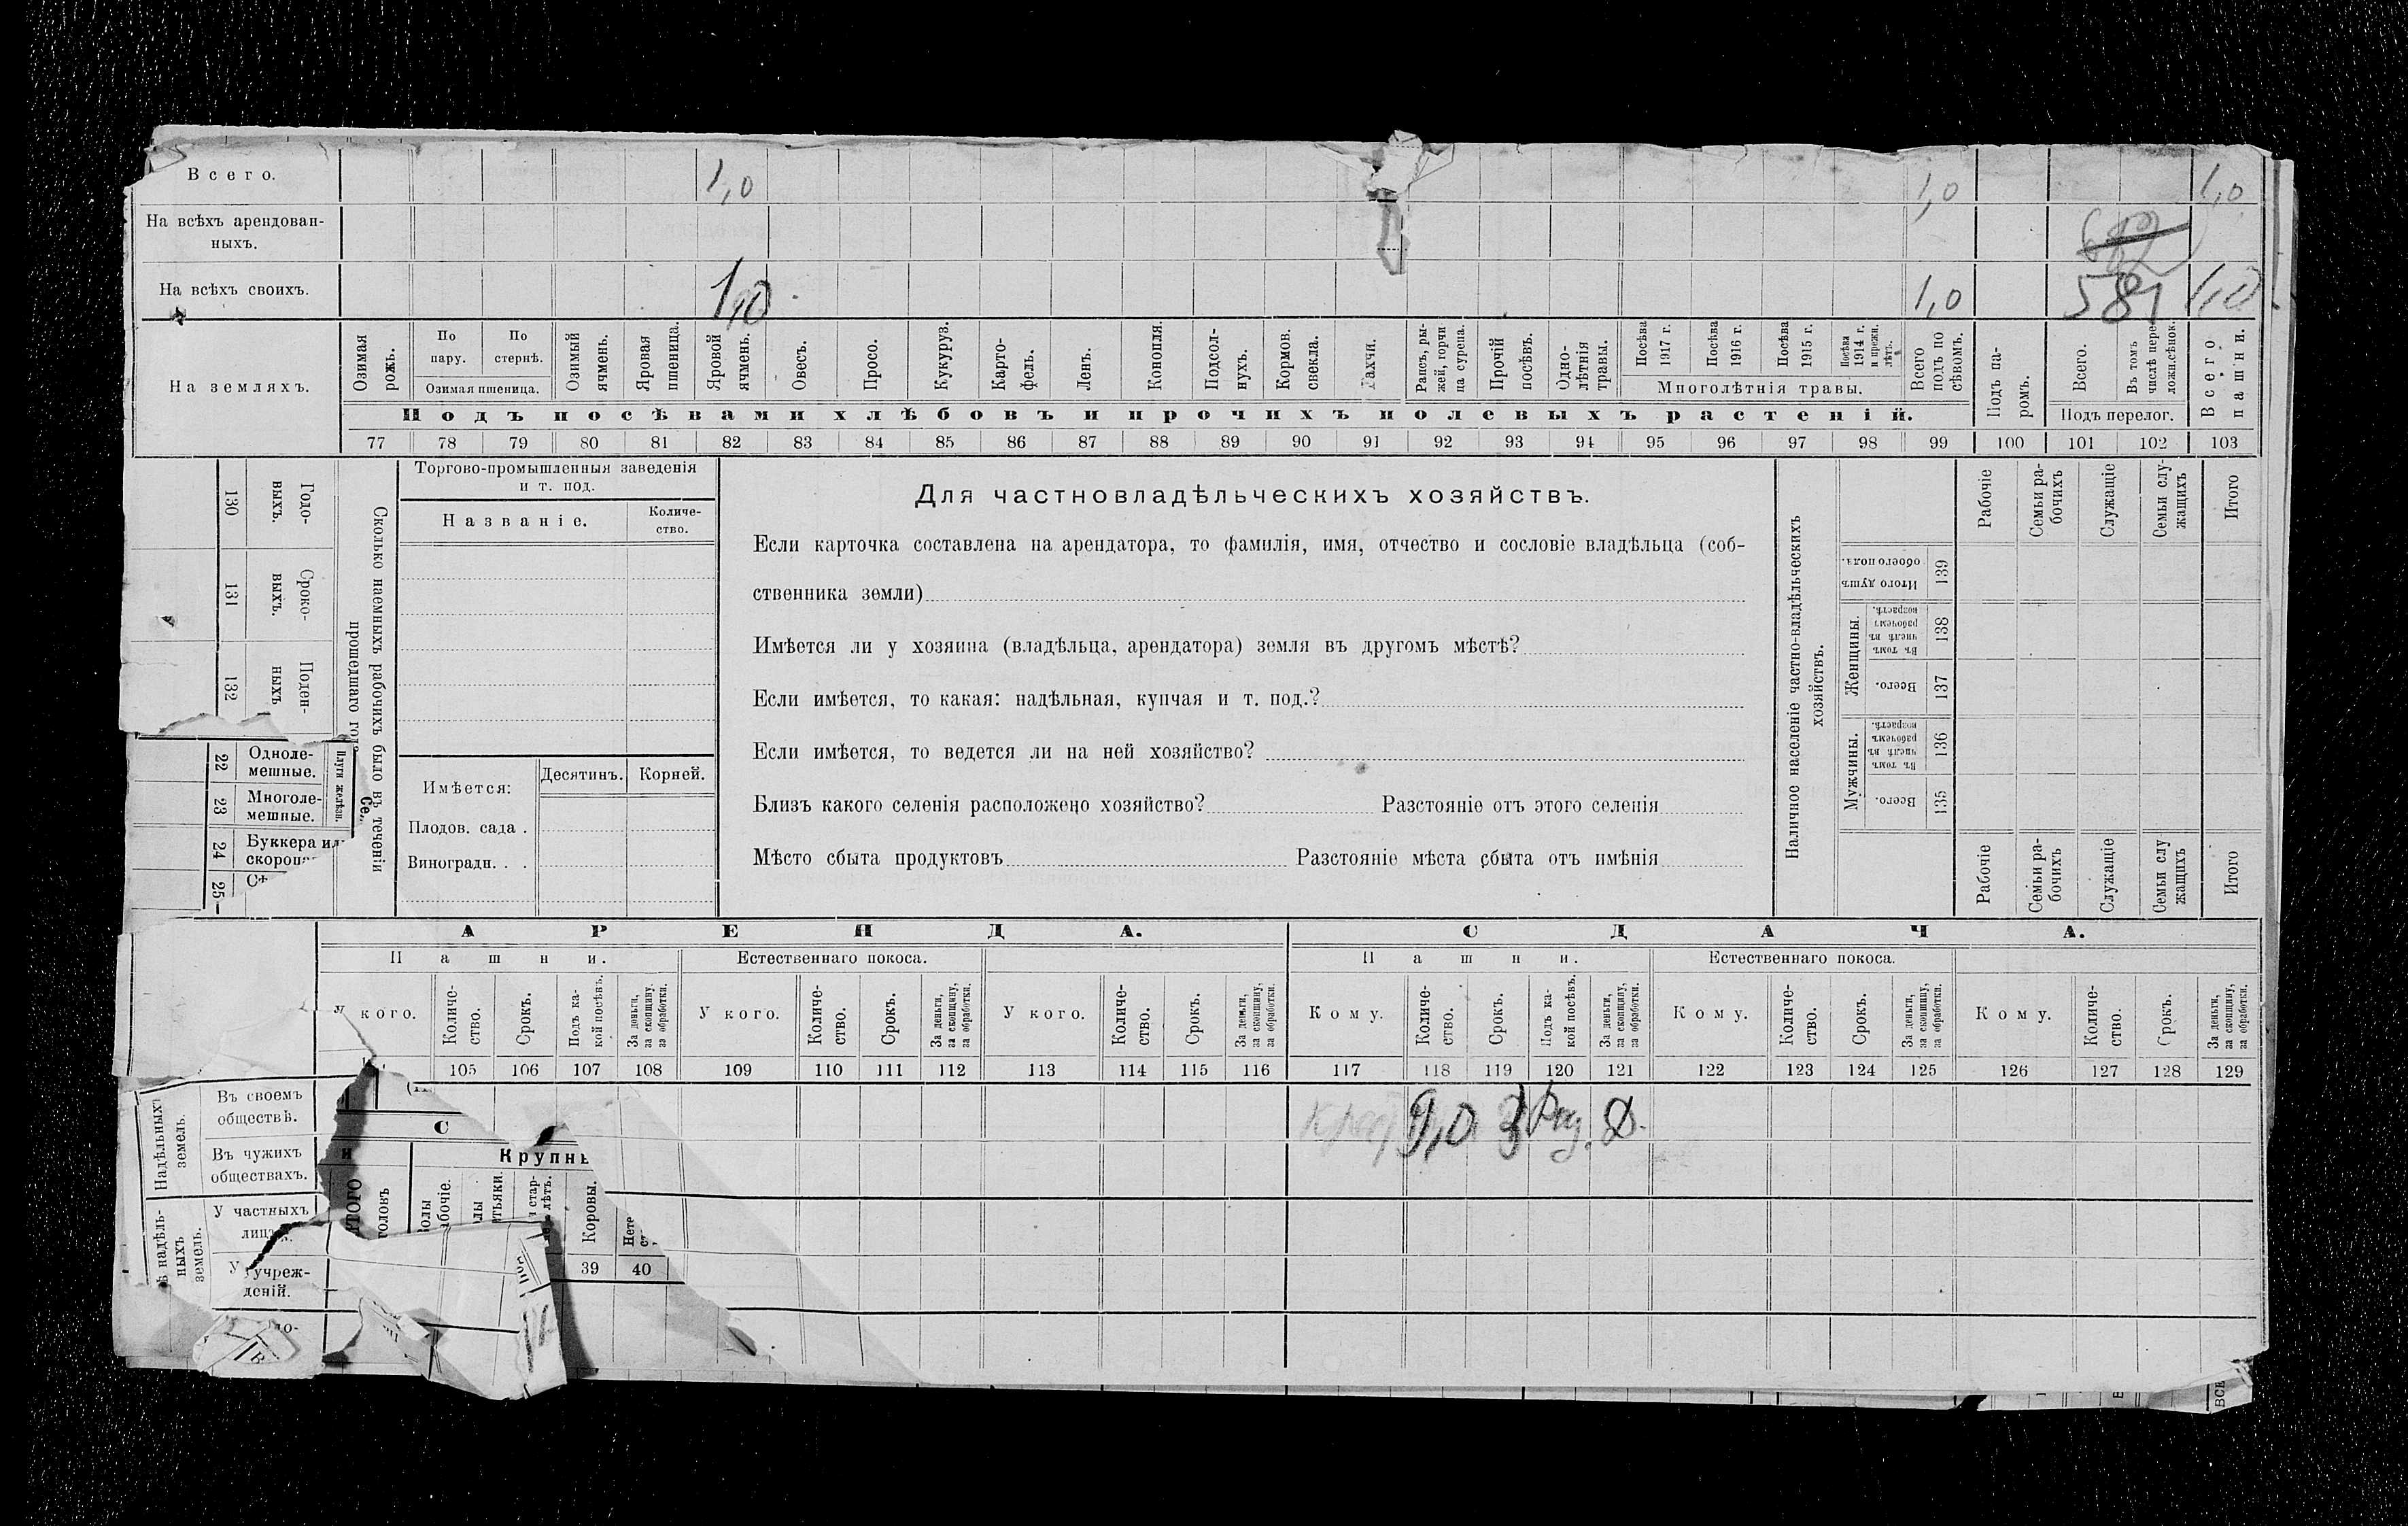 Всего. 1,0 1,0 1,0
На всѣхъ арендован-
ныхъ.
На всѣхъ своихъ. 1,0 1,0 581 1,0
На земляхъ.
Озимая рожь.
По пару.
По стернѣ.
Озимая пшеница.
Озимый ячмень.
Яровая пшеница.
Яровой ячмень.
Овесъ.
Просо.
Кукуруз.
Карто-
фель.
Ленъ.
Конопля.
Подсол-
нухъ.
Кормов. свекла.
Рапсъ, ры-
жей, горчи
ца сурепа.
Прочій посѣвъ.
Одно-
лѣтнія
травы.
Посѣва 1917 г.
Посѣва 1916 г.
Посѣва 1915 г.
Посѣва 1914 г. и прежн. лѣтъ.
Многолѣтнія травы.
Всего подъ по
сѣвомъ.
Подъ па-
ромъ.
Всего.
Въ томъ числѣ пере
ложн.сѣнок.
Подъ перелог.
Всего пашни.
Подъ посѣвами хлѣбовъ и прочихъ полевыхъ растеній.
77 78 79 80 81 82 83 84 85 86 87 88 89 90 91 92 93 94 95 96 97 98 99 100 101 102 103
130 Годо-
выхъ.
131 Сроко-
выхъ.
132 Поден-
ныхъ
Сколько наемныхъ рабочихъ было въ теченіи
прошедшаго
22 Одноле-
мешные.
23 Многоле-
мешные.
Плуги желѣзн.
24 Буккера
25
Торгово-промышленныя заведенія
и т. под.
Названіе.
Количе-
ство.
Имѣется:
Десятинъ. Корней.
Плодов. сада .
Виноградн. . .
Для частновладѣльческихъ хозяйствъ.
Если карточка составлена на арендатора, то фамилія, имя, отчество и сословіе владѣльца (соб-
ственника земли)
Имѣется ли у хозяина (владѣльца, арендатора) земля въ другомъ мѣстѣ?
Если имѣется, то какая: надѣльная, купчая и т. под.?
Если имѣется, то ведется ли на ней хозяйство?
Близъ какого селенія расположено хозяйство? Разстояніе отъ этого селенія
Мѣсто сбыта продуктовъ Разстояніе мѣста сбыта отъ имѣнія
Наличное населеніе частно-владѣльческихъ
хозяйствъ.
Рабочіе
Семьи ра-
бочихъ
Служащіе
Семьи слу-
жащихъ
Итого
Итого душъ обоего пола. 139
Женщины.
Въ томъ числѣ въ рабочемъ возрастѣ. 138
Всего. 137
Мужчины.
Въ томъ числѣ въ рабочемъ возрастѣ. 136
Всего. 135
Рабочіе
Семьи ра-
бочихъ
Служащіе
Семьи слу
жащихъ
Итого
АРЕНДА. СДАЧА.
Пашни. Естественнаго покоса. Пашни. Естественнаго покоса.
У кого.
Количе-
ство.
Срокъ.
Подъ ка-
кой посѣвъ.
За деньги,
за скопщину,
за обработки.
У кого.
Количе-
ство.
Срокъ.
За деньги,
за скопщину,
за обработки.
У кого.
Количе-
ство.
Срокъ.
За деньги,
за скопщину,
за обработки.
Кому.
Количе-
ство.
Срокъ.
Подъ ка-
кой посѣвъ.
За деньги,
за скопщину,
за обработки.
Кому.
Количе-
ство.
Срокъ.
За деньги,
за скопщину,
за обработки.
Кому.
Количе-
ство.
Срокъ.
За деньги,
за скопщину,
за обработки.
105 106 107 108 109 110 111 112 113 114 115 116 117 118 119 120 121 122 123 124 125 126 127 128 129
Надѣльныхъ
земель.
Въ своемъ
обществѣ. 9,0 3
Въ чужихъ
обществахъ.
земель.
У частныхъ
У учреж-
деній.
С
Коровы.
39 40